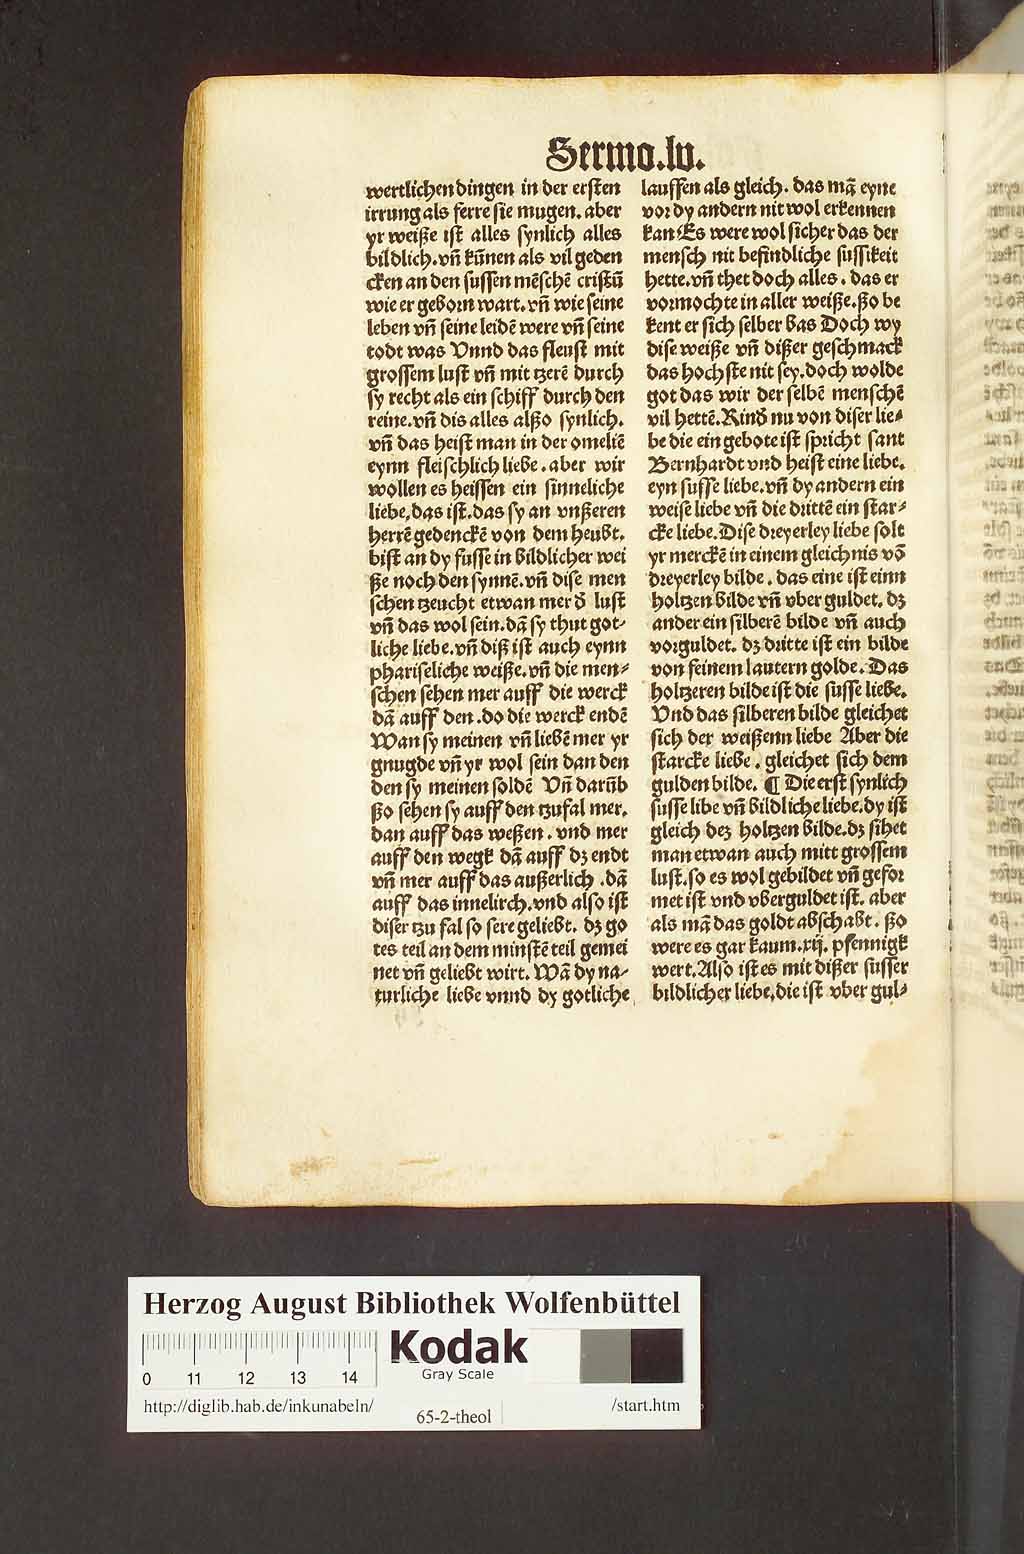 Sermo.lv.
wertlichen dingen in der ersten
irrung als ferre sie mugen. aber
yr weiße ist alles synlich alles
bildlich. vñ kũnen als vil geden
cken an den sussen mēschē cristũ
wie er geborn wart. vñ wie seine
leben vñ seine leidē were vñ seine
todt was Vnnd das fleust mit
grossem lust vñ mit tzerē durch
sy recht als ein schiff durch den
reine. vñ dis alles alßo synlich.
vñ das heist man in der omeliē
eynn fleischlich liebe. aber wir
wollen es heissen ein sinneliche
liebe, das ist. das sy an vnßeren
herrē gedenckē von dem heubt.
bist an dy fusse in bildlicher wei
ße noch den synnē. vñ dise men
schen tzeucht etwan mer d̕ lust
vñ das wol sein. dā sy thut got-
liche liebe. vñ diß ist auch eynn
phariseliche weiße. vñ die men-
schen sehen mer auff die werck
dā auff den. do die werck endē
Wan sy meinen vñ liebē mer yr
gnugde vñ yr wol sein dan den
den sy meinen soldē Vñ darũb
ßo sehen sy auff den tzufal mer.
dan auff das weßen. vnd mer
auff den wegk dā auff dz endt
vñ mer auff das außerlich. dā
auff das innelirch. vnd also ist
diser tzu fal so sere geliebt. dz go
tes teil an dem minstē teil gemei
net vñ geliebt wirt. Wā dy na-
turliche liebe vnnd dy gotliche
lauffen als gleich. das mā eyne
vor dy andern nit wol erkennen
kan Es were wol sicher das der
mensch nit befindliche sussikeit
hette. vñ thet doch alles. das er
vormochte in aller weiße. ßo be
kent er sich selber bas Doch wy
dise weiße vñ dißer geschmack
das hochste nit sey. doch wolde
got das wir der selbē menschē
vil hettē. Kind̕ nu von diser lie-
be die ein gebote ist spricht sant
Bernhardt vnd heist eine liebe.
eyn susse liebe. vñ dy andern ein
weise liebe vñ die drittē ein star-
cke liebe. Dise dreyerley liebe solt
yr merckē in einem gleichnis vō
dreyerley bilde. das eine ist einn
holtzen bilde vñ vber guldet. dz
ander ein silberē bilde vñ auch
vorguldet. dz dritte ist ein bilde
von feinem lautern golde. Das
holtzeren bilde ist die susse liebe.
Vnd das silberen bilde gleichet
sich der weißenn liebe Aber die
starcke liebe. gleichet sich dem
gulden bilde. ¶ Die erst synlich
susse libe vñ bildliche liebe. dy ist
gleich dez holtzen bilde. dz sihet
man etwan auch mitt grossem
lust. so es wol gebildet vñ gefor
met ist vnd vberguldet ist. aber
als mā das goldt abschabt. ßo
were es gar kaum. xij. pfennigk
wert. Also ist es mit dißer susser
bildlicher liebe, die ist vber gul-
Herzog August Bibliothek Wolfenbüttel
0 11 12 13 14
Kodak
Gray Scale
http://diglib.hab.de/inkunabeln/
65-2-theol
/start.htm